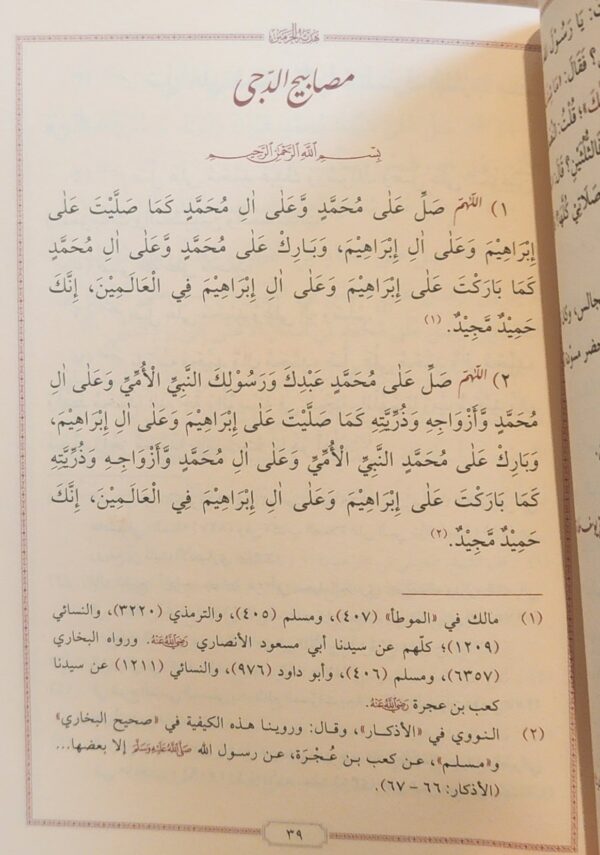 هدية الحرمين
مصابيح الدّجى
بِسْمِ اللهِ الرَّحْمٰنِ الرَّحِيْمِ
١) اللّٰهُمَّ صَلِّ عَلٰى مُحَمَّدٍ وَّعَلٰى اٰلِ مُحَمَّدٍ كَمَا صَلَّيْتَ عَلٰى
إِبْرَاهِيْمَ وَعَلٰى اٰلِ إِبْرَاهِيْمَ، وَبَارِكْ عَلٰى مُحَمَّدٍ وَّعَلٰى اٰلِ مُحَمَّدٍ
كَمَا بَارَكْتَ عَلٰى إِبْرَاهِيْمَ وَعَلٰى اٰلِ إِبْرَاهِيْمَ فِي الْعَالَمِيْنَ، إِنَّكَ
حَمِيْدٌ مَّجِيْدٌ. (١)
٢) اللّٰهُمَّ صَلِّ عَلٰى مُحَمَّدٍ عَبْدِكَ وَرَسُوْلِكَ النَّبِيِّ الْأُمِّيِّ وَعَلٰى اٰلِ
مُحَمَّدٍ وَّأَزْوَاجِهِ وَذُرِّيَّتِهِ كَمَا صَلَّيْتَ عَلٰى إِبْرَاهِيْمَ وَعَلٰى اٰلِ إِبْرَاهِيْمَ،
وَبَارِكْ عَلٰى مُحَمَّدٍ النَّبِيِّ الْأُمِّيِّ وَعَلٰى اٰلِ مُحَمَّدٍ وَّأَزْوَاجِهِ وَذُرِّيَّتِهِ
كَمَا بَارَكْتَ عَلٰى إِبْرَاهِيْمَ وَعَلٰى اٰلِ إِبْرَاهِيْمَ فِي الْعَالَمِيْنَ، إِنَّكَ
حَمِيْدٌ مَّجِيْدٌ. (٢)
(١) مالك في «الموطأ» (٤٠٧)، ومسلم (٤٠٥)، والترمذي (٣٢٢٠)، والنسائي
(١٢٠٩)؛ كلّهم عن سيدنا أبي مسعود الأنصاري رضي الله عنه. ورواه البخاري
(٦٣٥٧)، ومسلم (٤٠٦)، وأبو داود (٩٧٦)، والنسائي (١٢١١) عن سيدنا
كعب بن عجرة رضي الله عنه.
(٢) النووي في «الأذكار»، وقال: وروينا هذه الكيفية في «صحيح البخاري»
و«مسلم»، عن كعب بن عُجْرَة، عن رسول الله صلى الله عليه وسلم إلا بعضها...
(الأذكار: ٦٦ – ٦٧).
٣٩